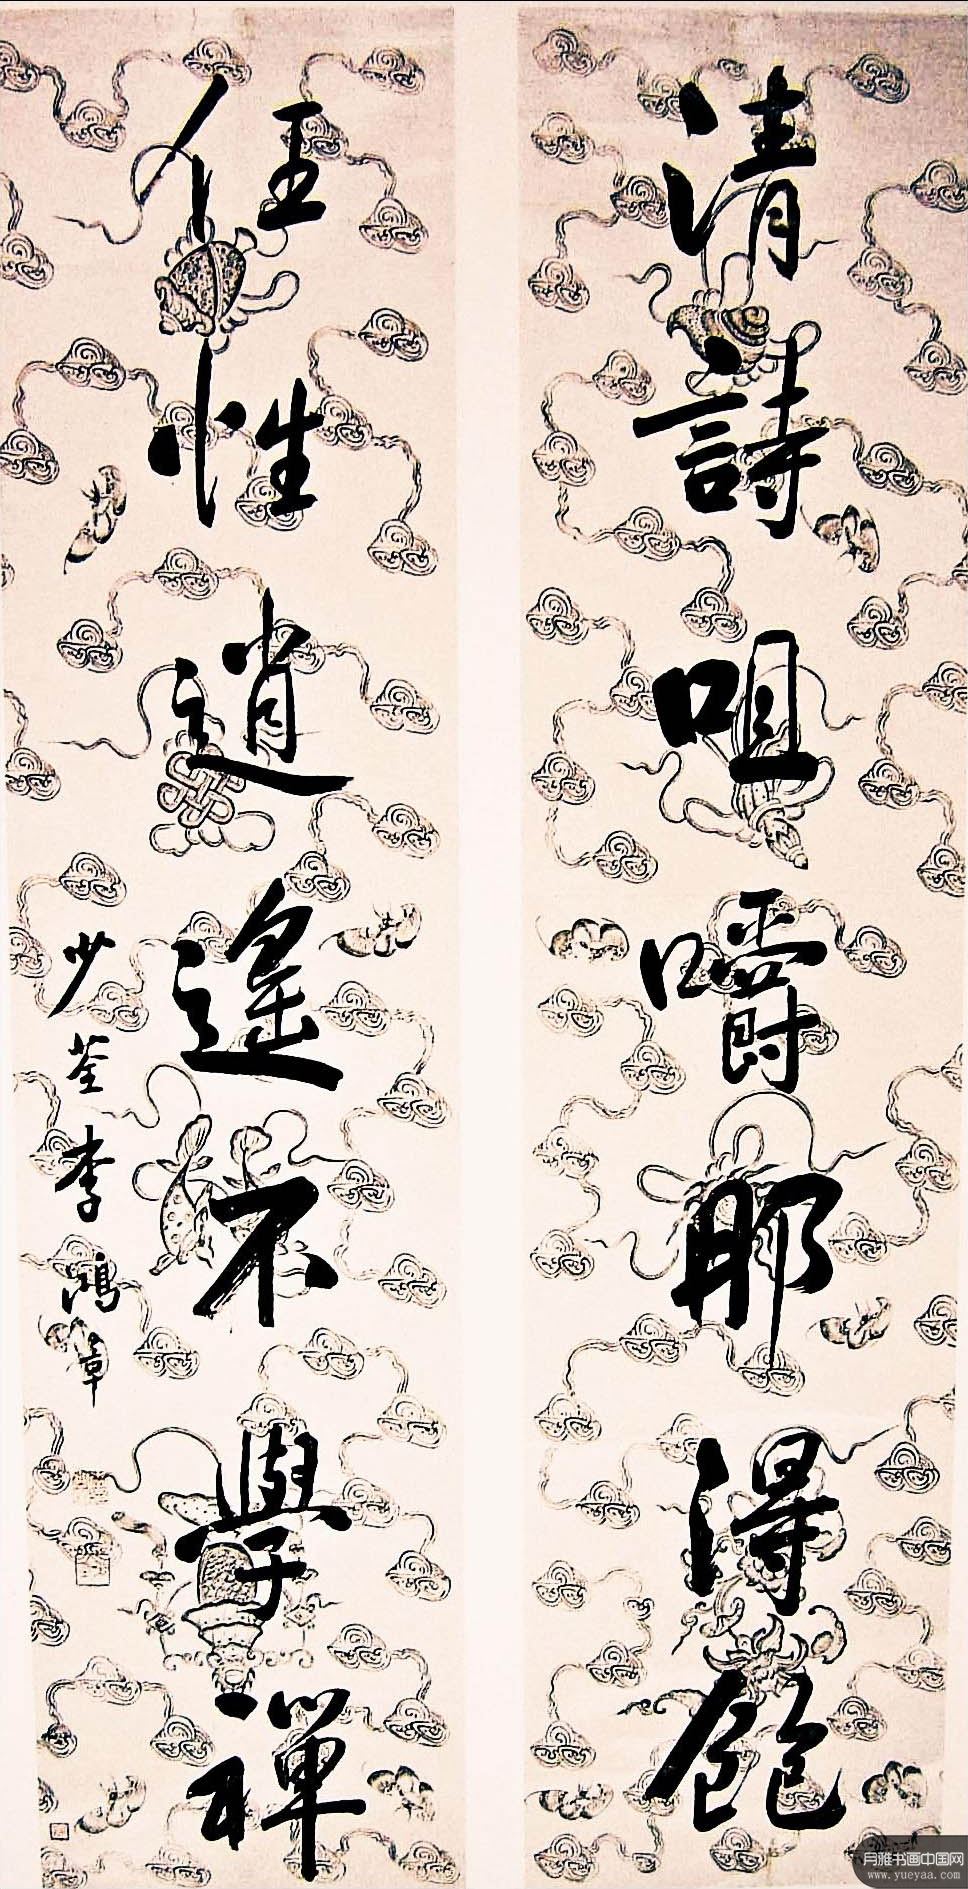 清詩咀嚼那得飽
任性逍遙不學禪
少荃李鴻章
月雅书画中国网
www.yueyaa.com